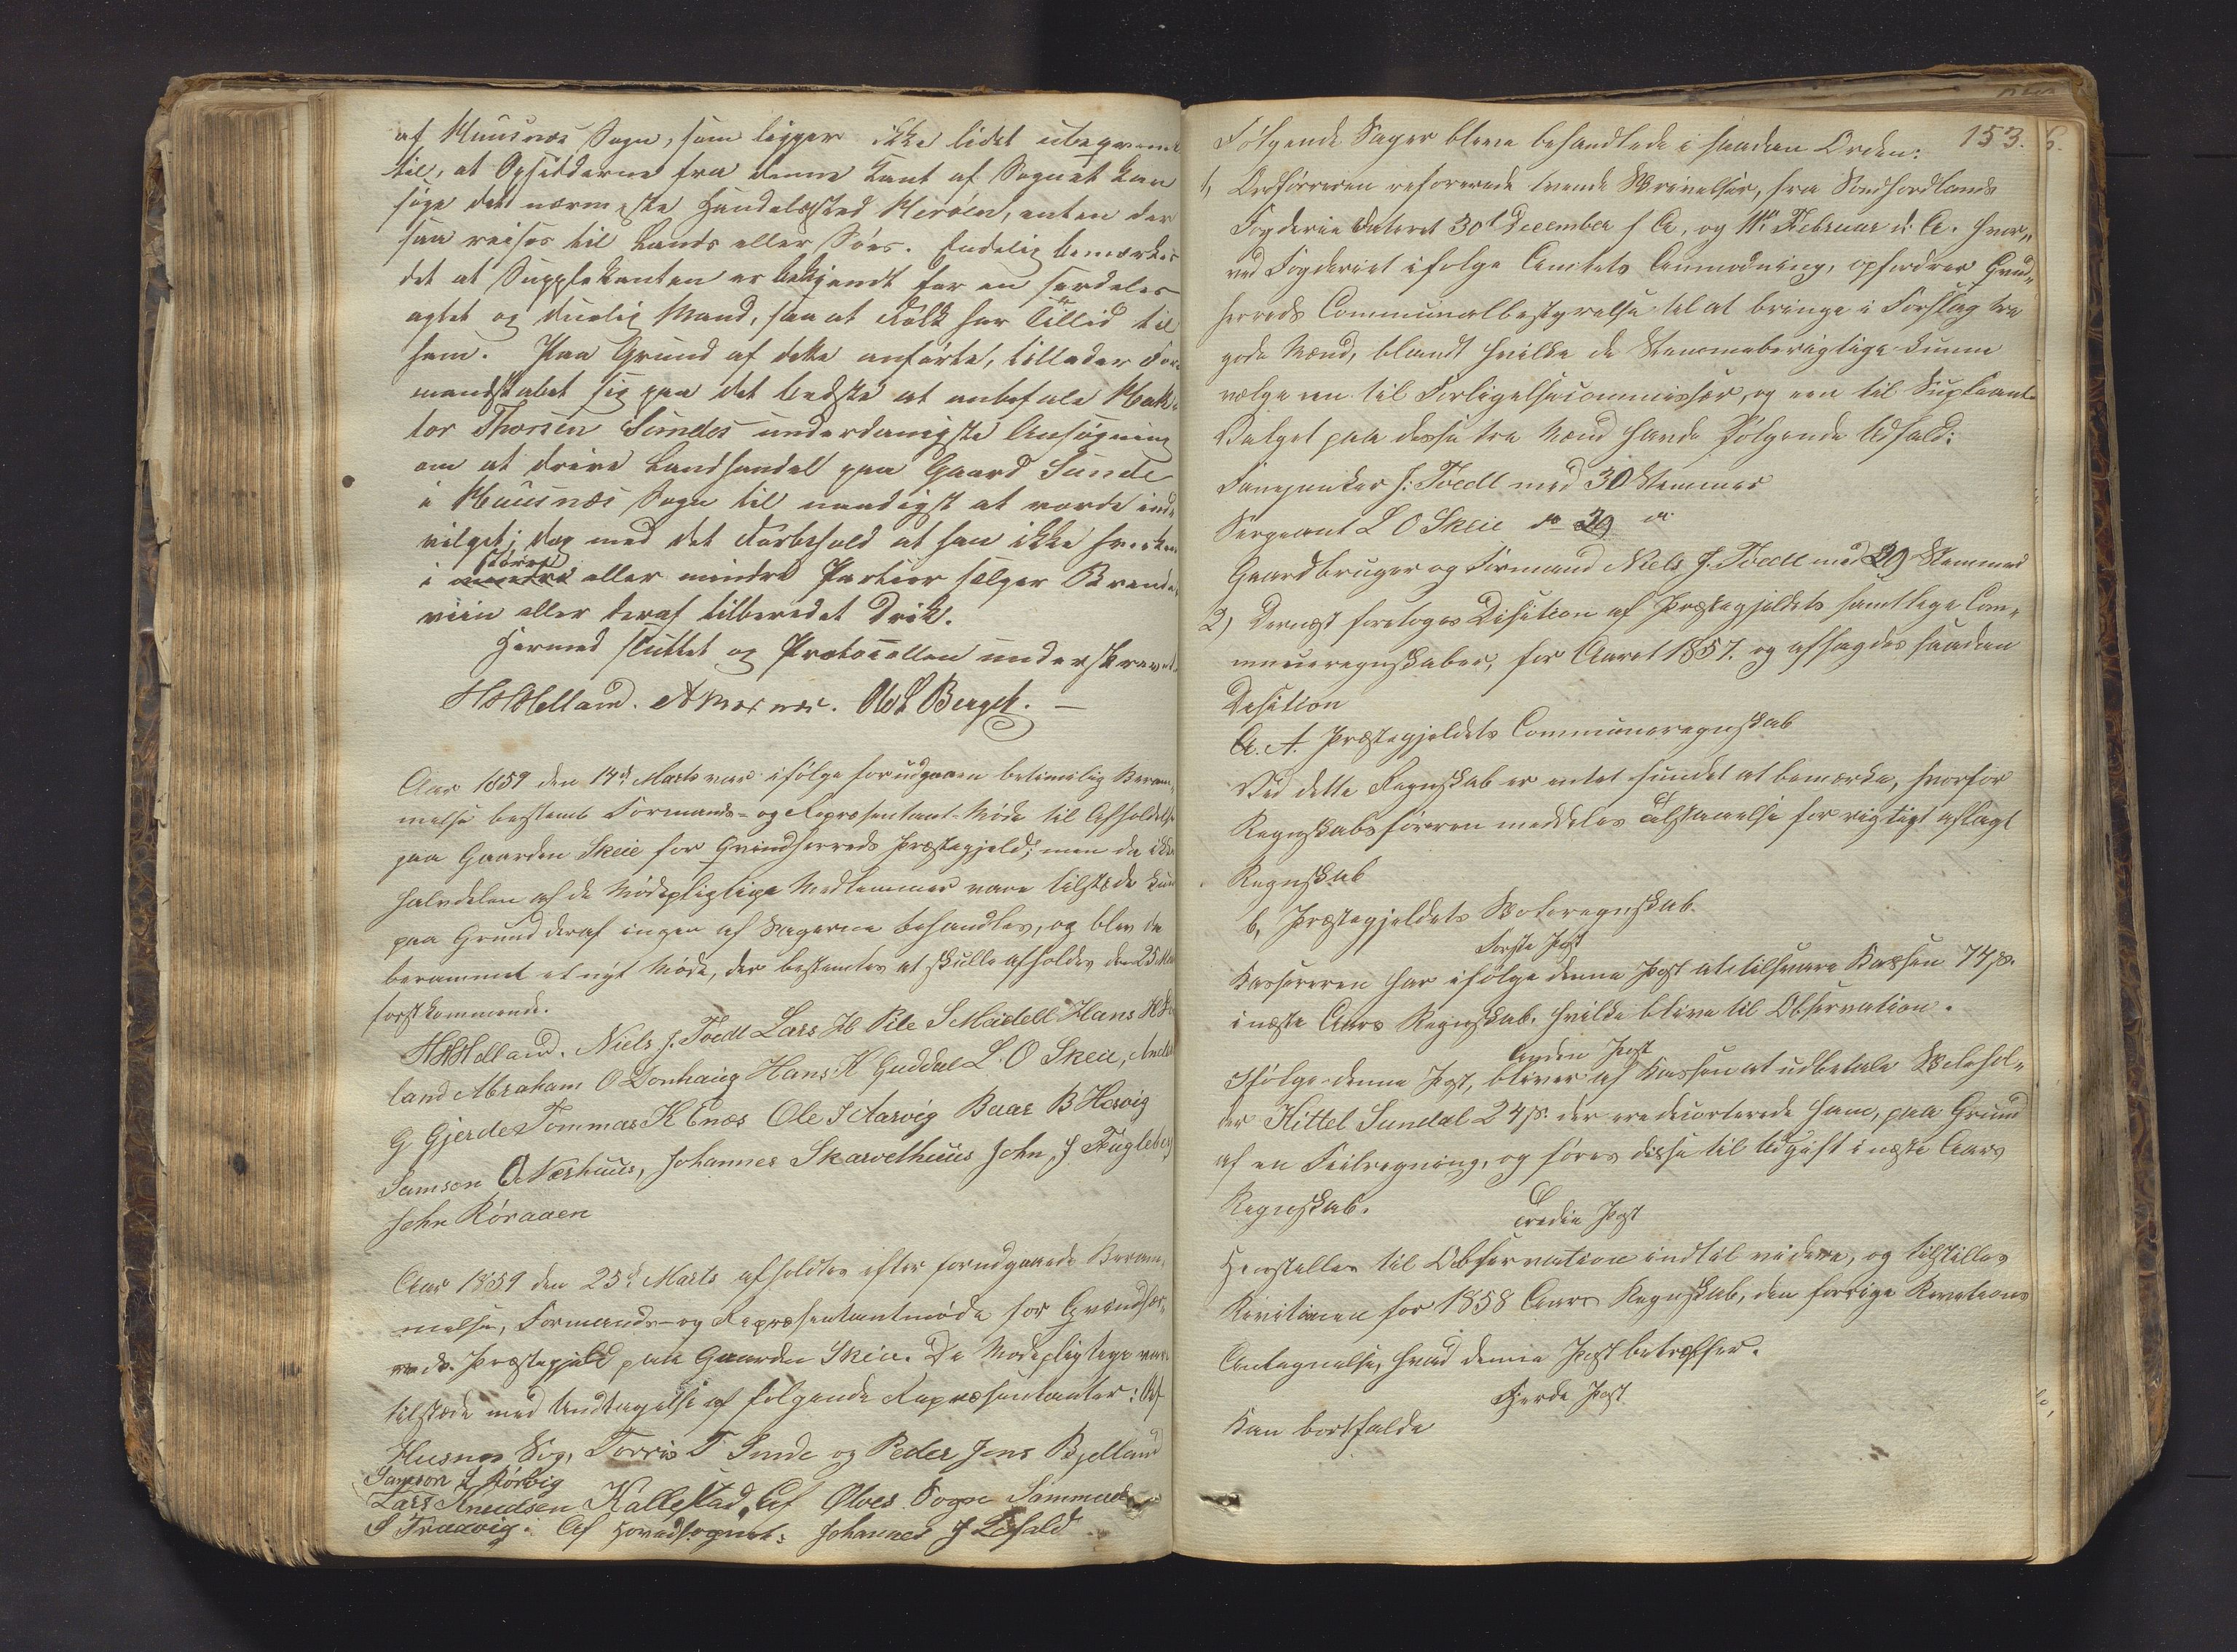 af Huusnæs Sogn, som ligger ikke lidet ubeqvemt
til, at Opsidderne fra denne Kant af Sognet kan
søge det nærmeste Handelssted Herøen, enten der
saa reises til Lands eller Søes. Endelig bemærkes
det at Supplikanten er bekjendt for en særdeles
agtet og duelig Mand, saa at Folk har Tillid til
ham. Paa Grund af dette anførte, tillader For¬
mandskabet sig paa det bedste at anbefale
Thorsen Sundes underdanigste Ansøgning
om at drive Landhandel paa Gaard Sunde
i Huusnæs Sogn til naadigst at vorde ind¬
vilget; dog med det Forbehold at han ikke hverken
større
i mindre eller mindre Partier sælger Brænde¬
viin eller deraf tilberedet Drik.
Hermed sluttet og Protocollen underskrevet
H H Helland. A Mræsnæs. Ole L Berget. —
Aar 1859 den 14d Marts var ifølge forudgaaen betimelig Beram¬
melse bestemt Formands- og Repræsentant-Møde til Afholdelse
paa Gaarden Skeie for Qvindherreds Præstegjeld; men da ikke
halvdelen af de Mødepligtige Medlemmer vare tilstæde kun
paa Grund deraf ingen af Sagerne behandles, og blev da
berammet et nyt Møde, der bestemtes at skulle afholdes den 25 Mar
førstkommende.
H H Helland. Niels J. Tvedt Lars H Pile S Meidell Hans H
land Abraham O Donhaug Hans K Guddal L. O Skeie,
G Gjerde Tommas K Enæs Ole I Aarvig Baar B Hervig
Samson O Nærhuus, Johannes Skarvelhuus John J Fugleberg
John Røraaen
Aar 1859 den 25d Marts afholdtes efter forudgaaende Beram¬
melse, Formands- og Repræsentantmøde for Qvindher¬
reds Præstegjeld paa Gaarden Skeie. De Mødepligtige vare
tilstæde med Undtagelse af følgende Repræsentanter: Af
Husnes Sog, Torris T Sunde og Peder Jens Bjelland
Samson S Rørvig
Lars Knudsen Kallestad. Af Ølves Sogn Sammund
S Traavig. Af Hovedsognet: Johannes J Løfald
153.
6.
Følgende Sager bleve behandlede i saadan Orden:
1, Ordføreren refererede tvende Skrivelser, fra Søndhordlands
Fogderie dateret 30d December f A, og 11te Februar d: A. hvor¬
ved Fogderiet ifølge Amtets Anmodning, opfordrer Qvind¬
herreds Communalbestyrelse til at bringe i Forslag tre
gode Mænd, blandt hvilke de Stemmeberigtige kunne
vælge een til Forligelsescommissær, og een til Supleant
Valget paa disse tre Mænd havde følgende Udfald:
Fanejunker J: Tvedt med 30 Stemmer
Sergeant L O Skeie do 29 do
Gaardbruger og Formand Niels J. Tvedt med 29 Stemmer
2) Dernæst foretoges Disition af Præstegjeldets samtlige Com¬
muneregnskaber, for Aaret 1857. og afsagdes saadan
Desition
a. A. Præstegjeldets Communeregnskab
Ved dette Regnskab er intet fundet at bemærke, hvorfor
Regnskabsføreren meddeles Tilstaaelse for rigtigt aflagt
Regnskab
b, Præstegjeldets Skoleregnskab.
Første Post
Kassereren har ifølge denne Post at tilsvare Kassen 74 s.
i næste Aars Regnskab. hvilke blive til Observation.
Anden Post
Ifølge denne Post, bliver af Kassen at udbetale Skolehol¬
der Kittel Sundal 24 s. der ere decorterede ham, paa Grund
af en Feilregning, og føres disse til Udgift i næste Aars
Regnskab.
Tredie Post
Henstilles til Observation indtil videre, og tilstilles
Revisionen for 1858 Aars Regnskab, den forrige Revisions
Antegnelse, hvad denne Post betræffer.
Fjerde Post
Kan bortfalde